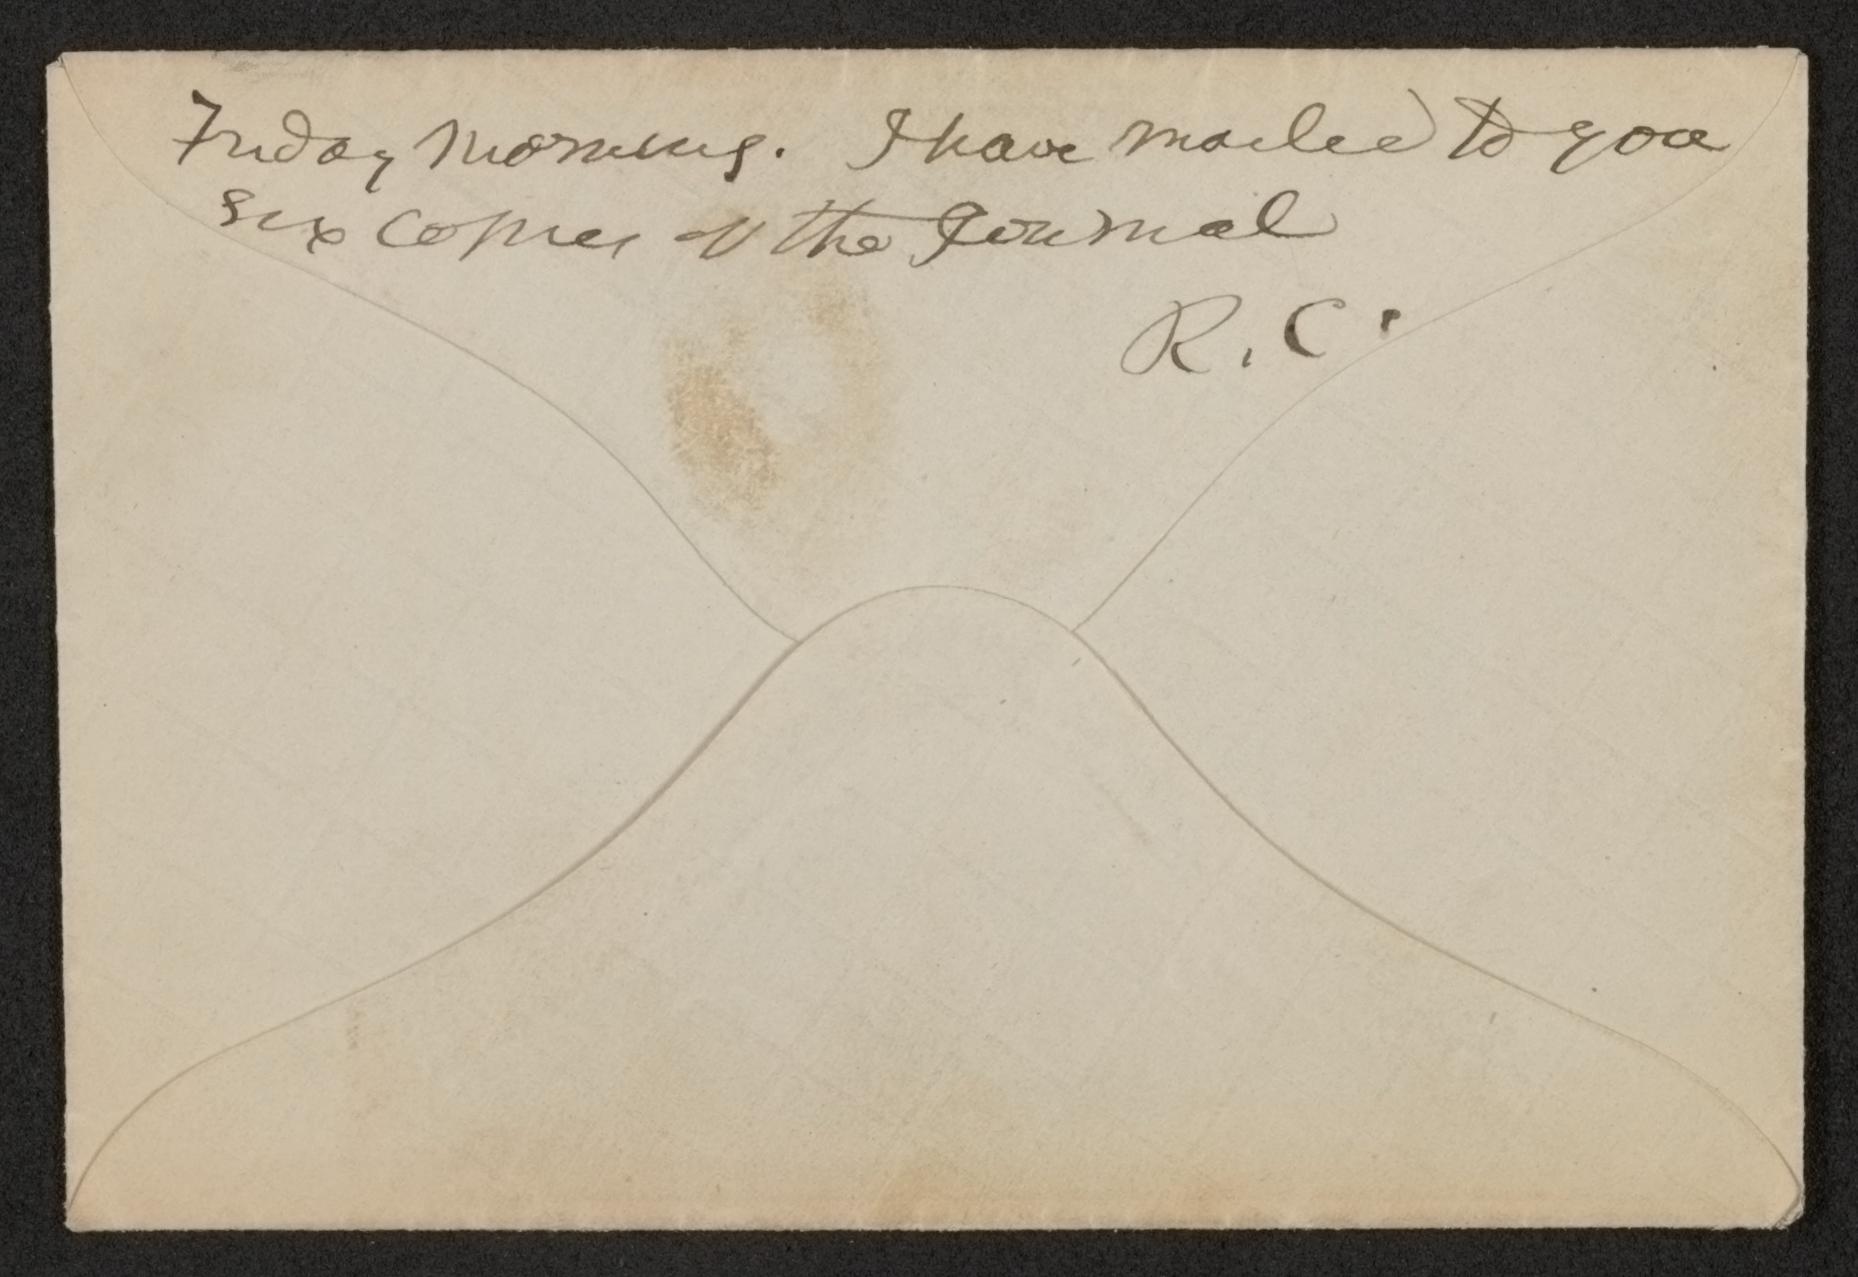 Friday Morning. I have mailed to you
six copies of the Journal
R. C.